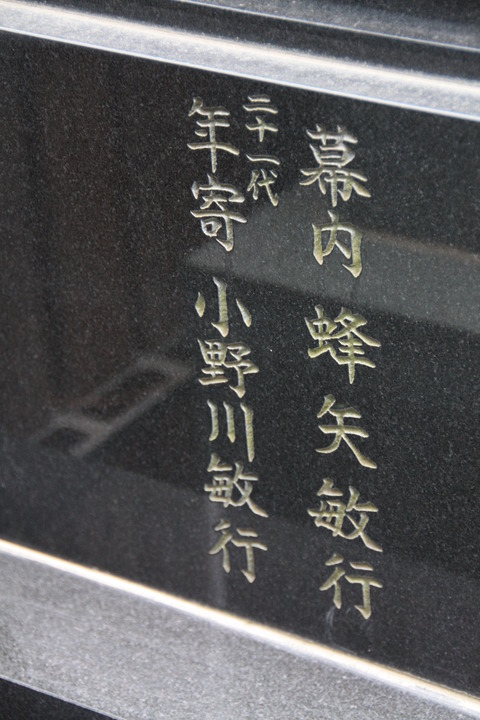 幕内 蜂矢敏行
二十一代
年寄 小野川敏行